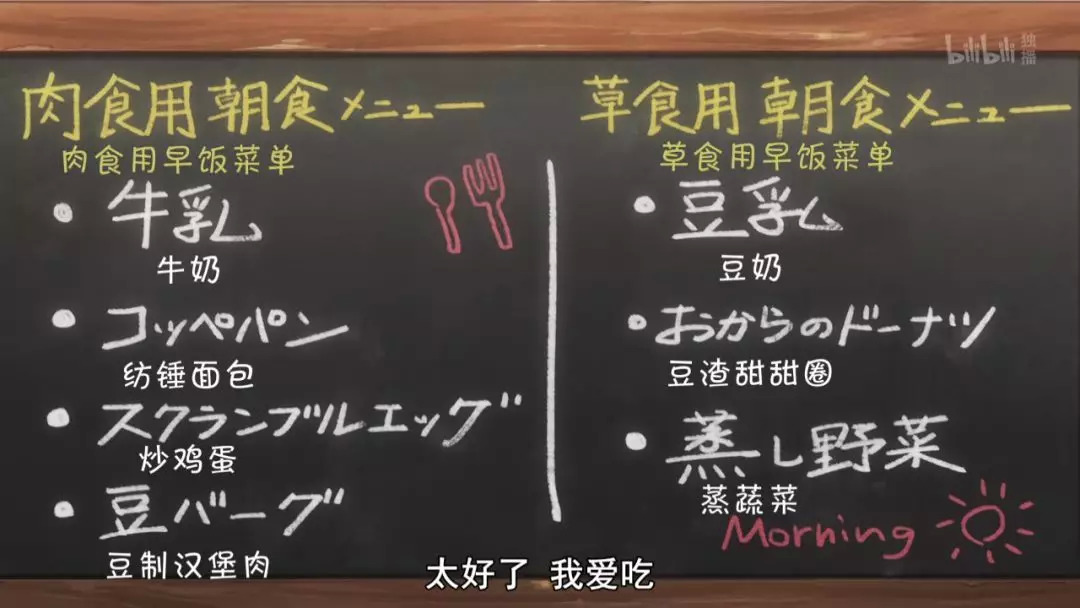 bilibili 独播
肉食用 朝食メニュー
肉食用早饭菜单
• 牛乳
牛奶
• コッペパン
纺锤面包
• スクランブルエッグ
炒鸡蛋
• 豆バーグ
豆制汉堡肉
草食用 朝食メニュー
草食用早饭菜单
• 豆乳
豆奶
• おからのドーナツ
豆渣甜甜圈
• 蒸し野菜
蒸蔬菜
Morning
太好了 我爱吃